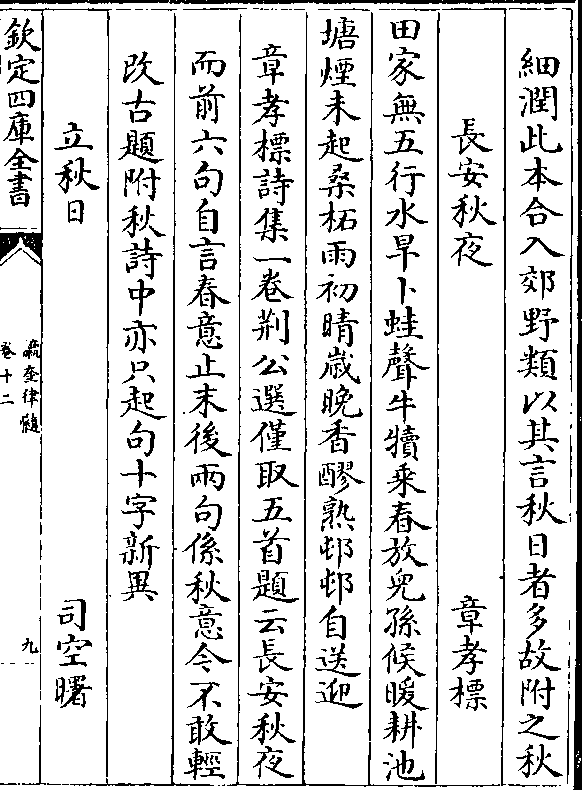 細潤此本合入郊野類以其言秋日者多故附之秋
長安秋夜 章孝標
田家無五行水旱卜蛙聲牛犢乘春放兒孫候暖耕池
塘煙未起桑柘雨初晴歲晚香醪熟邨邨自送迎
章孝標詩集一卷荆公選僅取五首題云長安秋夜
而前六句自言春意止末後兩句係秋意今不敢輕
改古題附秋詩中亦只起句十字新異
立秋日 司空曙
欽定四庫全書
瀛奎律髓
卷十二
九